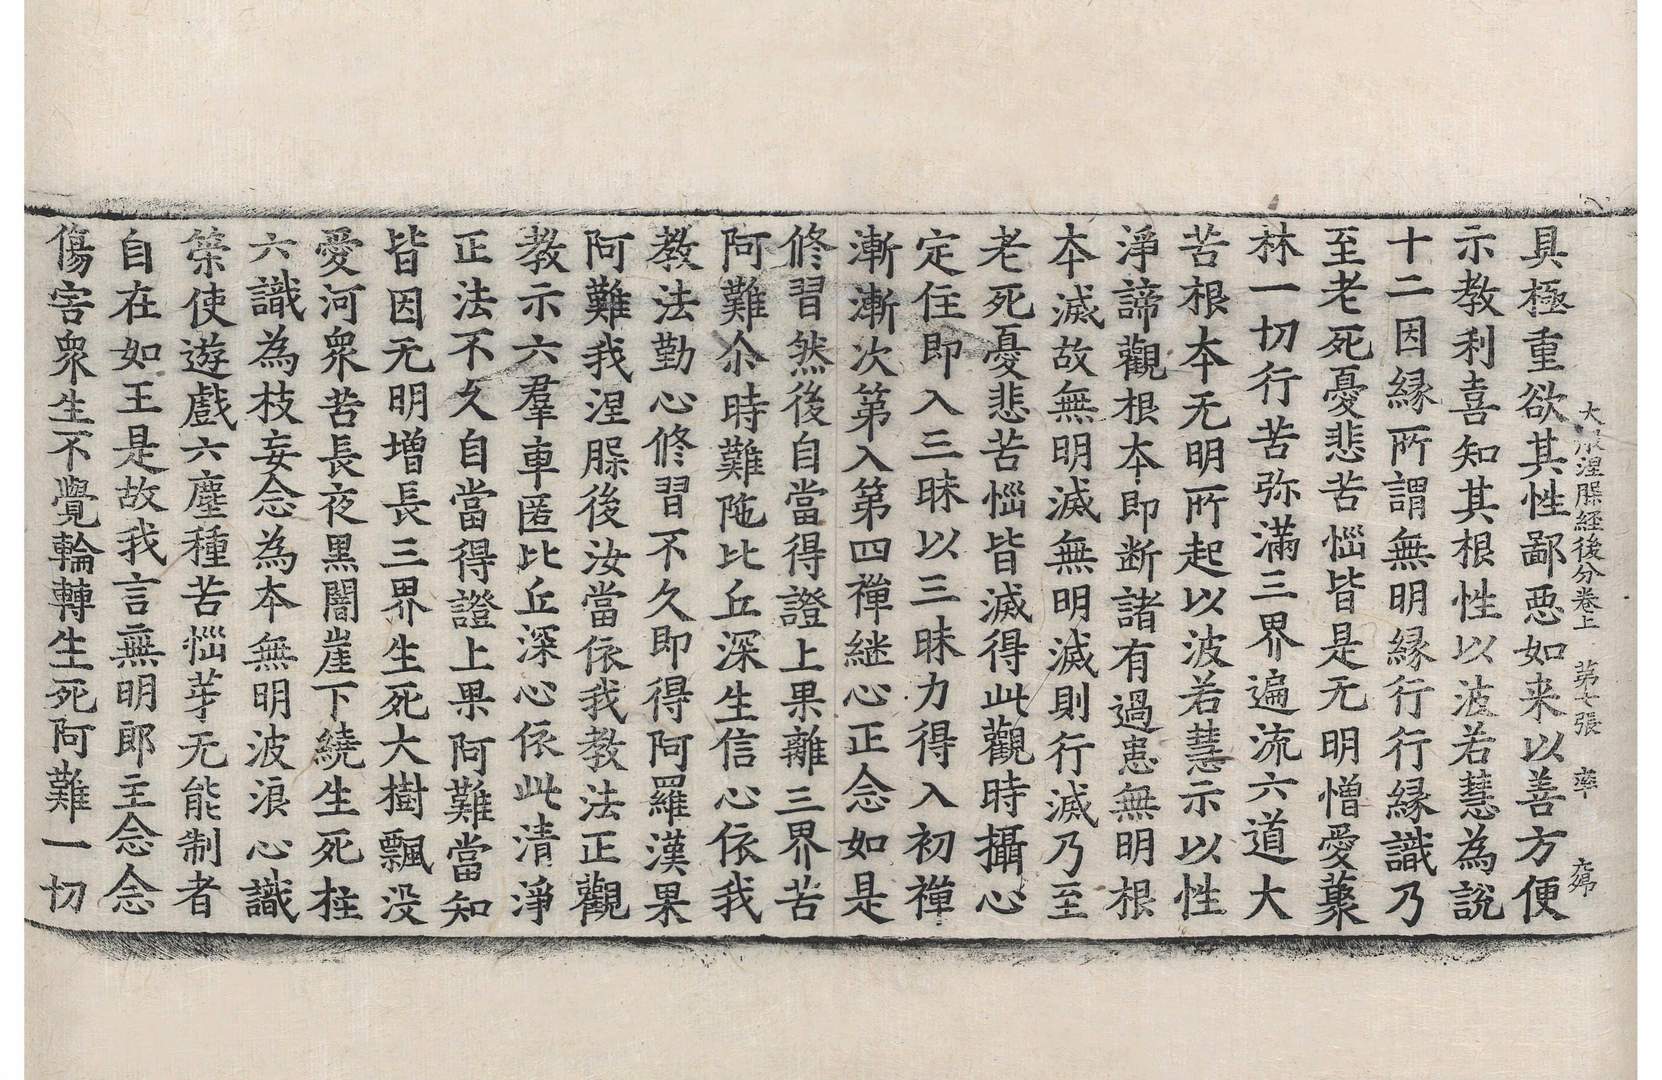 大般涅槃経後分卷上　第七張　率
具極重欲其性鄙惡如来以善方便
示教利喜知其根性以波若慧為說
十二因緣所謂無明緣行行緣識乃
至老死憂悲苦惱皆是无明憎愛藂
林一切行苦弥滿三界遍流六道大
苦根本无明所起以波若慧示以性
淨諦觀根本即断諸有過患無明根
本滅故無明滅無明滅則行滅乃至
老死憂悲苦惱皆滅得此觀時攝心
定住即入三昧以三昧力得入初禪
漸漸次第入第四禪継心正念如是
修習然後自當得證上果離三界苦
阿難尒時難陁比丘深生信心依我
教法勤心修習不久即得阿羅漢果
阿難我涅槃後汝當依我教法正觀
教示六羣車匿比丘深心依此清淨
正法不久自當得證上果阿難當知
皆因无明增長三界生死大樹飄没
愛河衆苦長夜黑闇崖下繞生死柱
六識為枝妄念為本無明波浪心識
策使遊戲六塵種苦惱芽无能制者
自在如王是故我言無明郎主念念
傷害衆生不覺輪轉生死阿難一切